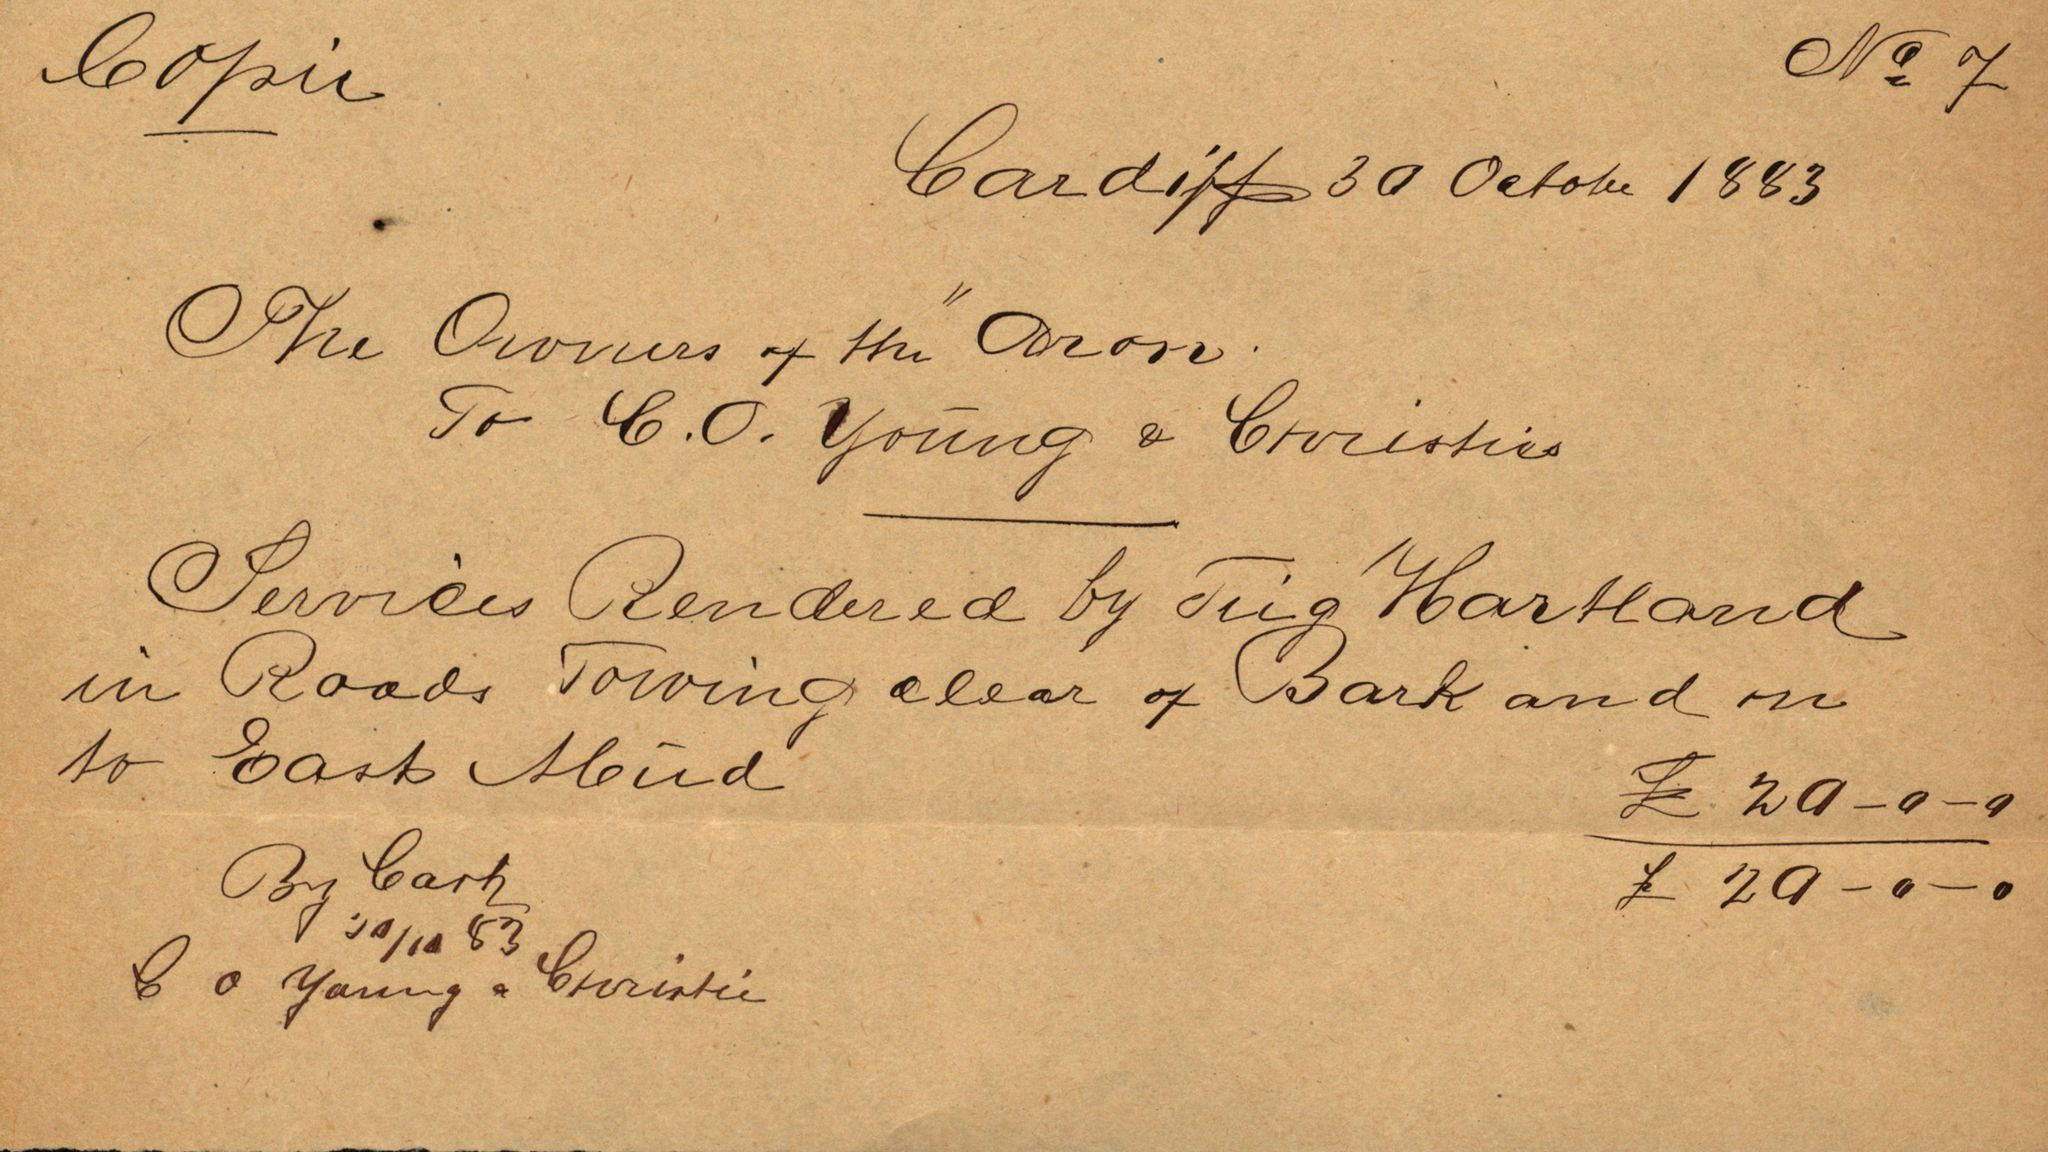 Copie
No 7
Cardiff 30 Octobe 1883
The Owners of the " Aron.
To C. O. Young & Christies
Services Rendered by Tug Hartland
in Roads Towing clear of Bark and on
to East Mud
£ 20-0-0
£ 20-0-0
By Cash
30/10 83
C O Young & Christie